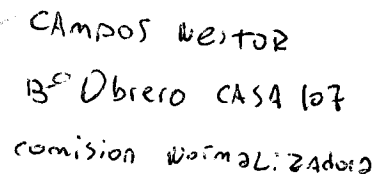 CAMPOS NestOR
Bº Obrero CASA 107
comision NormaLiZAdora